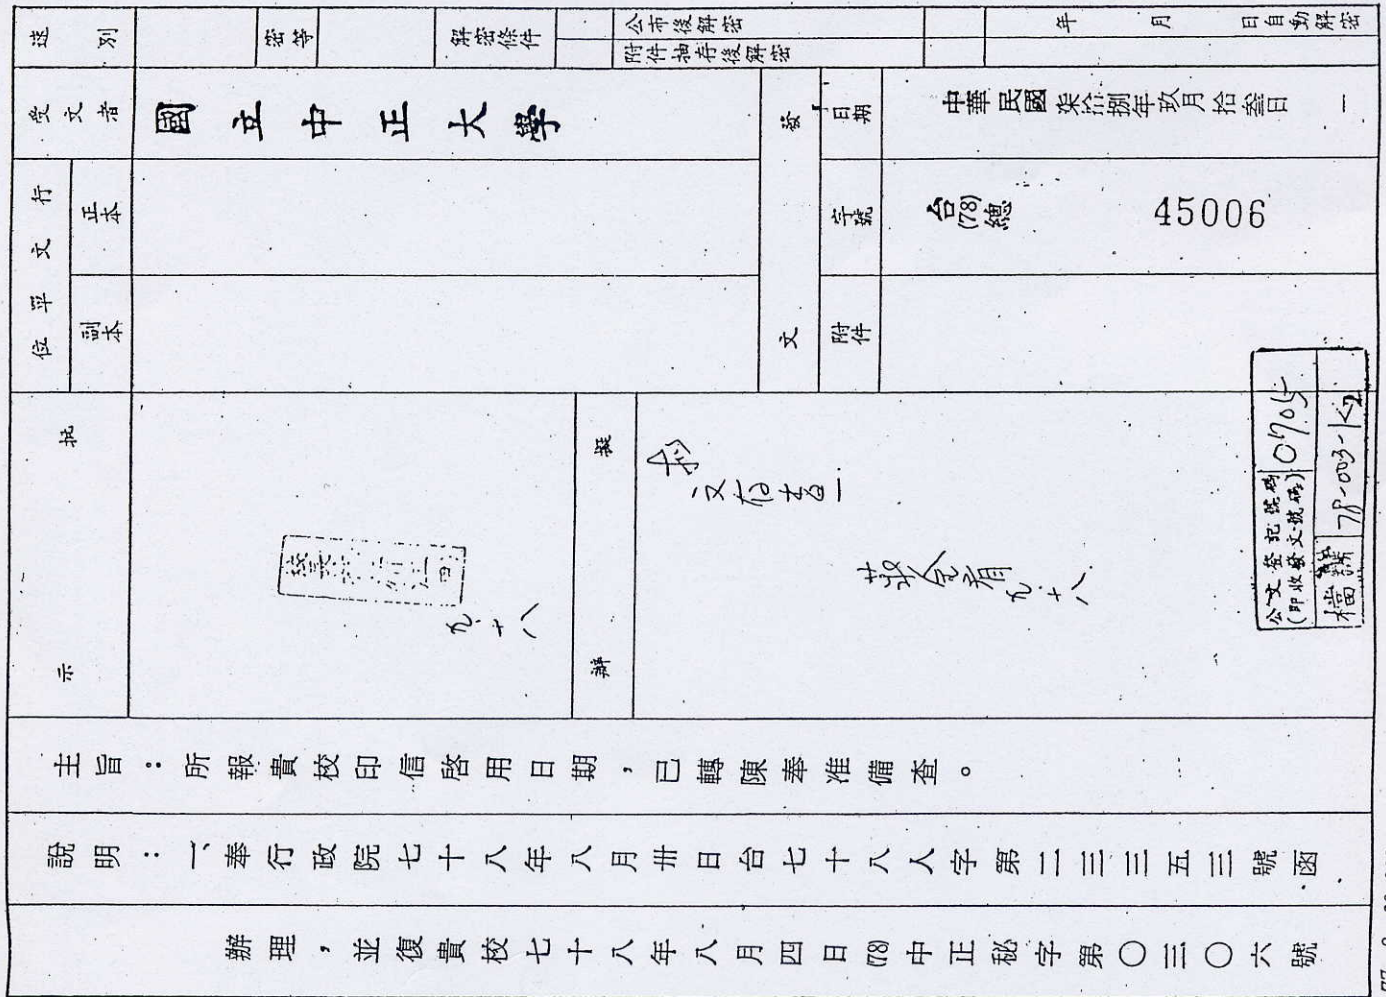 速別
密等
解密條件
公布後解密
附件抽存後解密
年 月 日自動解密
受文者
國立中正大學
發文
日期
中華民國柒拾捌年玖月拾叁日
行文單位
正本
字號
台(78)總 45006
副本
附件
批示
九、十八
擬辦
文存查
九、十八
公文登記號碼
(即收發文號碼)
0705
檔號
78-003-K2
主旨：所報貴校印信啓用日期，已轉陳奉准備查。
說明：一、奉行政院七十八年八月卅日台七十八人字第二三三五三號函
辦理，並復貴校七十八年八月四日(78)中正秘字第〇三〇六號